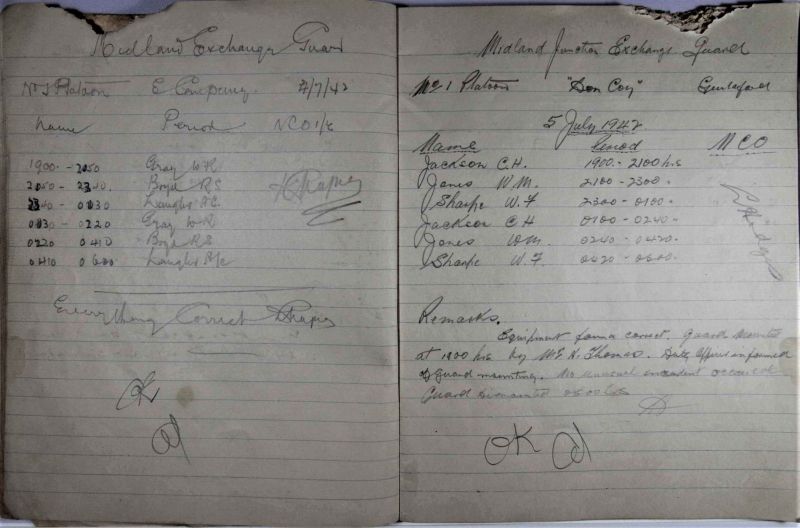 Midland Exchange Guard
No 1 Platoon E Company 4/7/42
Name Period NCO i/c
1900 - 2050 Gray W R
2050 - 2240. Boyd R S
2240 - 0030 Langler A C.
0030 - 0220 Gray W R
0220 0410 Boyd R S
0410 0600 Langler A C
Everything Correct
OK
Midland Junction Exchange Guard
No 1 Platoon "Don Coy" Guildford
5 July 1942
Name Period NCO
Jackson C.H. 1900 - 2100 hrs
Jones W.M. 2100 - 2300.
Sharpe W.F 2300 - 0100.
Jackson C H 0100 - 0240.
Jones W M. 0240 - 0420.
Sharpe W.F. 0420 - 0600.
Remarks.
Equipment found correct. Guard mounted
at 1900 hrs by Thomas. Officer informed
of Guard mounting. No unusual incident occurred
Guard dismounted 0600 hrs
OK